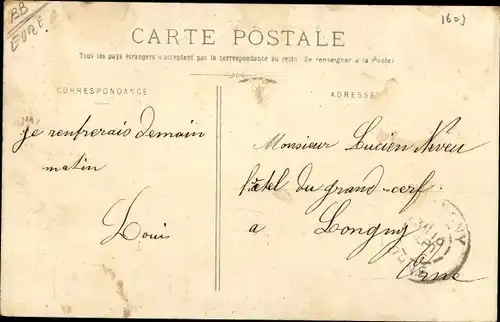 BB
EURE
1603
CARTE POSTALE
Tous les pays étrangers n'acceptent pas la correspondance au recto Se renseigner à la Poste)
CORRESPONDANCE
ADRESSE
je rentrerais demain
matin
Louis
Monsieur Lucien Neveu
hôtel du grand-cerf
a Longny
Orne